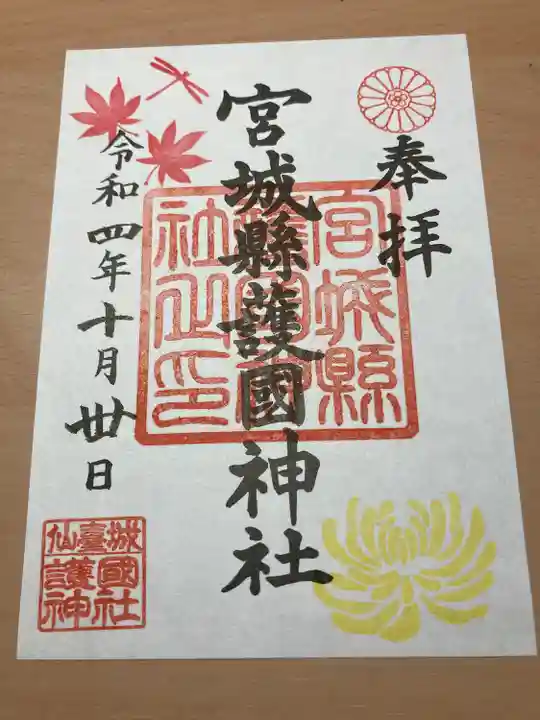 奉拝
宮城縣護國神社
令和四年十月丗日
宮城縣
護國神
社之印
仙臺城
護國
神社